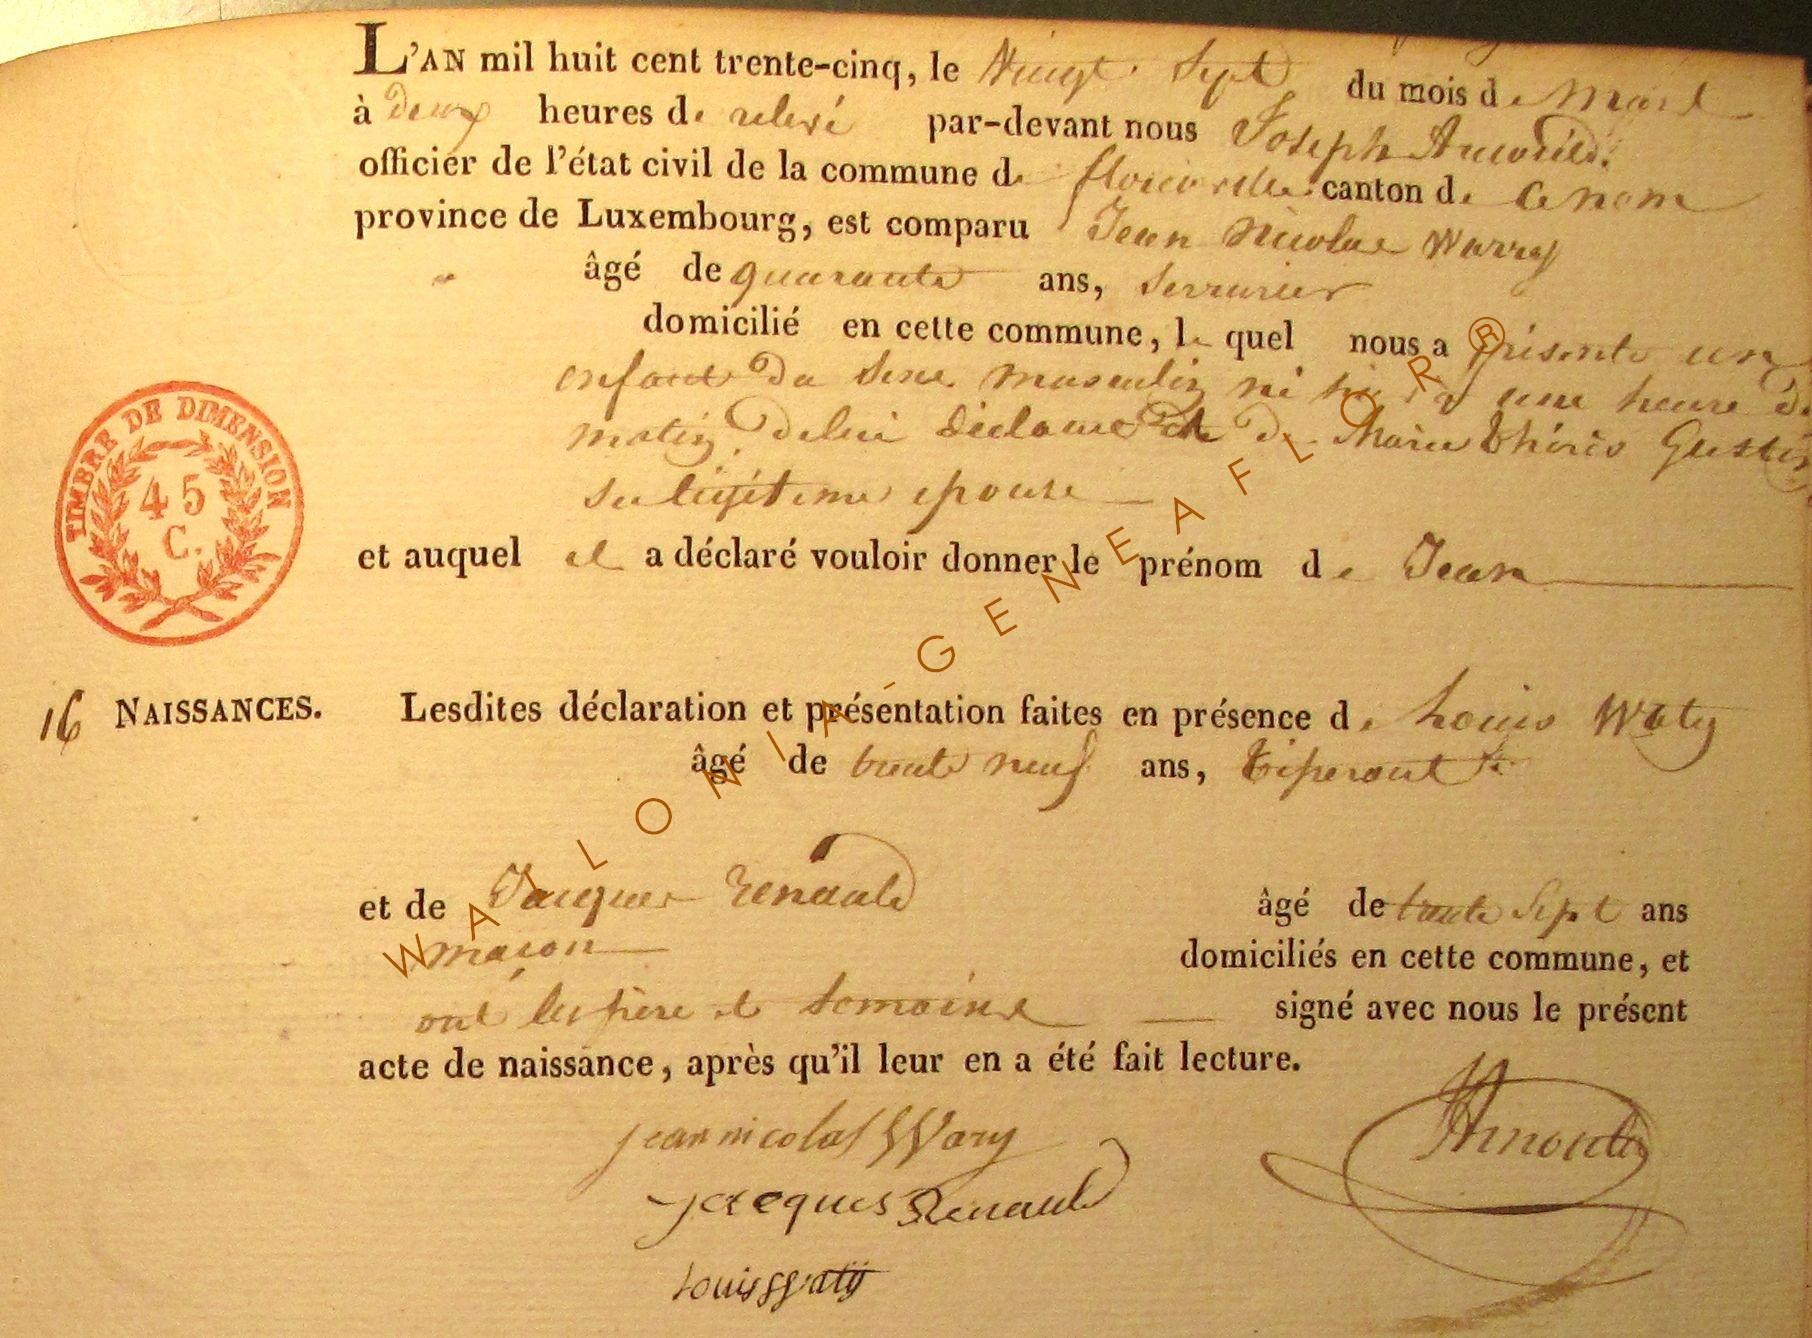 L'AN mil huit cent trente-cinq, le Vingt Sept du mois de Mars
à deux heures de relevé par-devant nous Joseph Arnould
officier de l'état civil de la commune de florenville canton de ce nom
province de Luxembourg, est comparu Jean Nicolas Warry
âgé de quarante ans, serrurier
domicilié en cette commune, le quel nous a présenté un
enfant du sexe masculin né à une heure du
matin, de lui déclarant et de Marie thérès Gustin
sa légitime epouse
et auquel il a déclaré vouloir donner le prénom de Jean
TIMBRE DE DIMENSION
45
C.
16 NAISSANCES. Lesdites déclaration et présentation faites en présence de Louis Waty
âgé de trente neuf ans, tisserant
et de Jacques Renauld âgé de trente Sept ans
maçon domiciliés en cette commune, et
ont les père et temoins signé avec nous le présent
acte de naissance, après qu'il leur en a été fait lecture.
jean nicolas Wary
JArnould
jacques Renauld
Louis Waty
WALLONIA-GENEAFLOR®